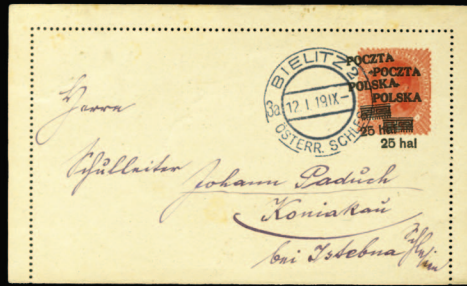 BIELITZ 2
3a 12.I.19 IX-
ÖSTERR. SCHLES.
POCZTA
-POCZTA
POLSKA-
-POLSKA
25 hal
25 hal
Herrn
Schulleiter
Johann Paduch
Koniakau
bei Istebna Schlesien